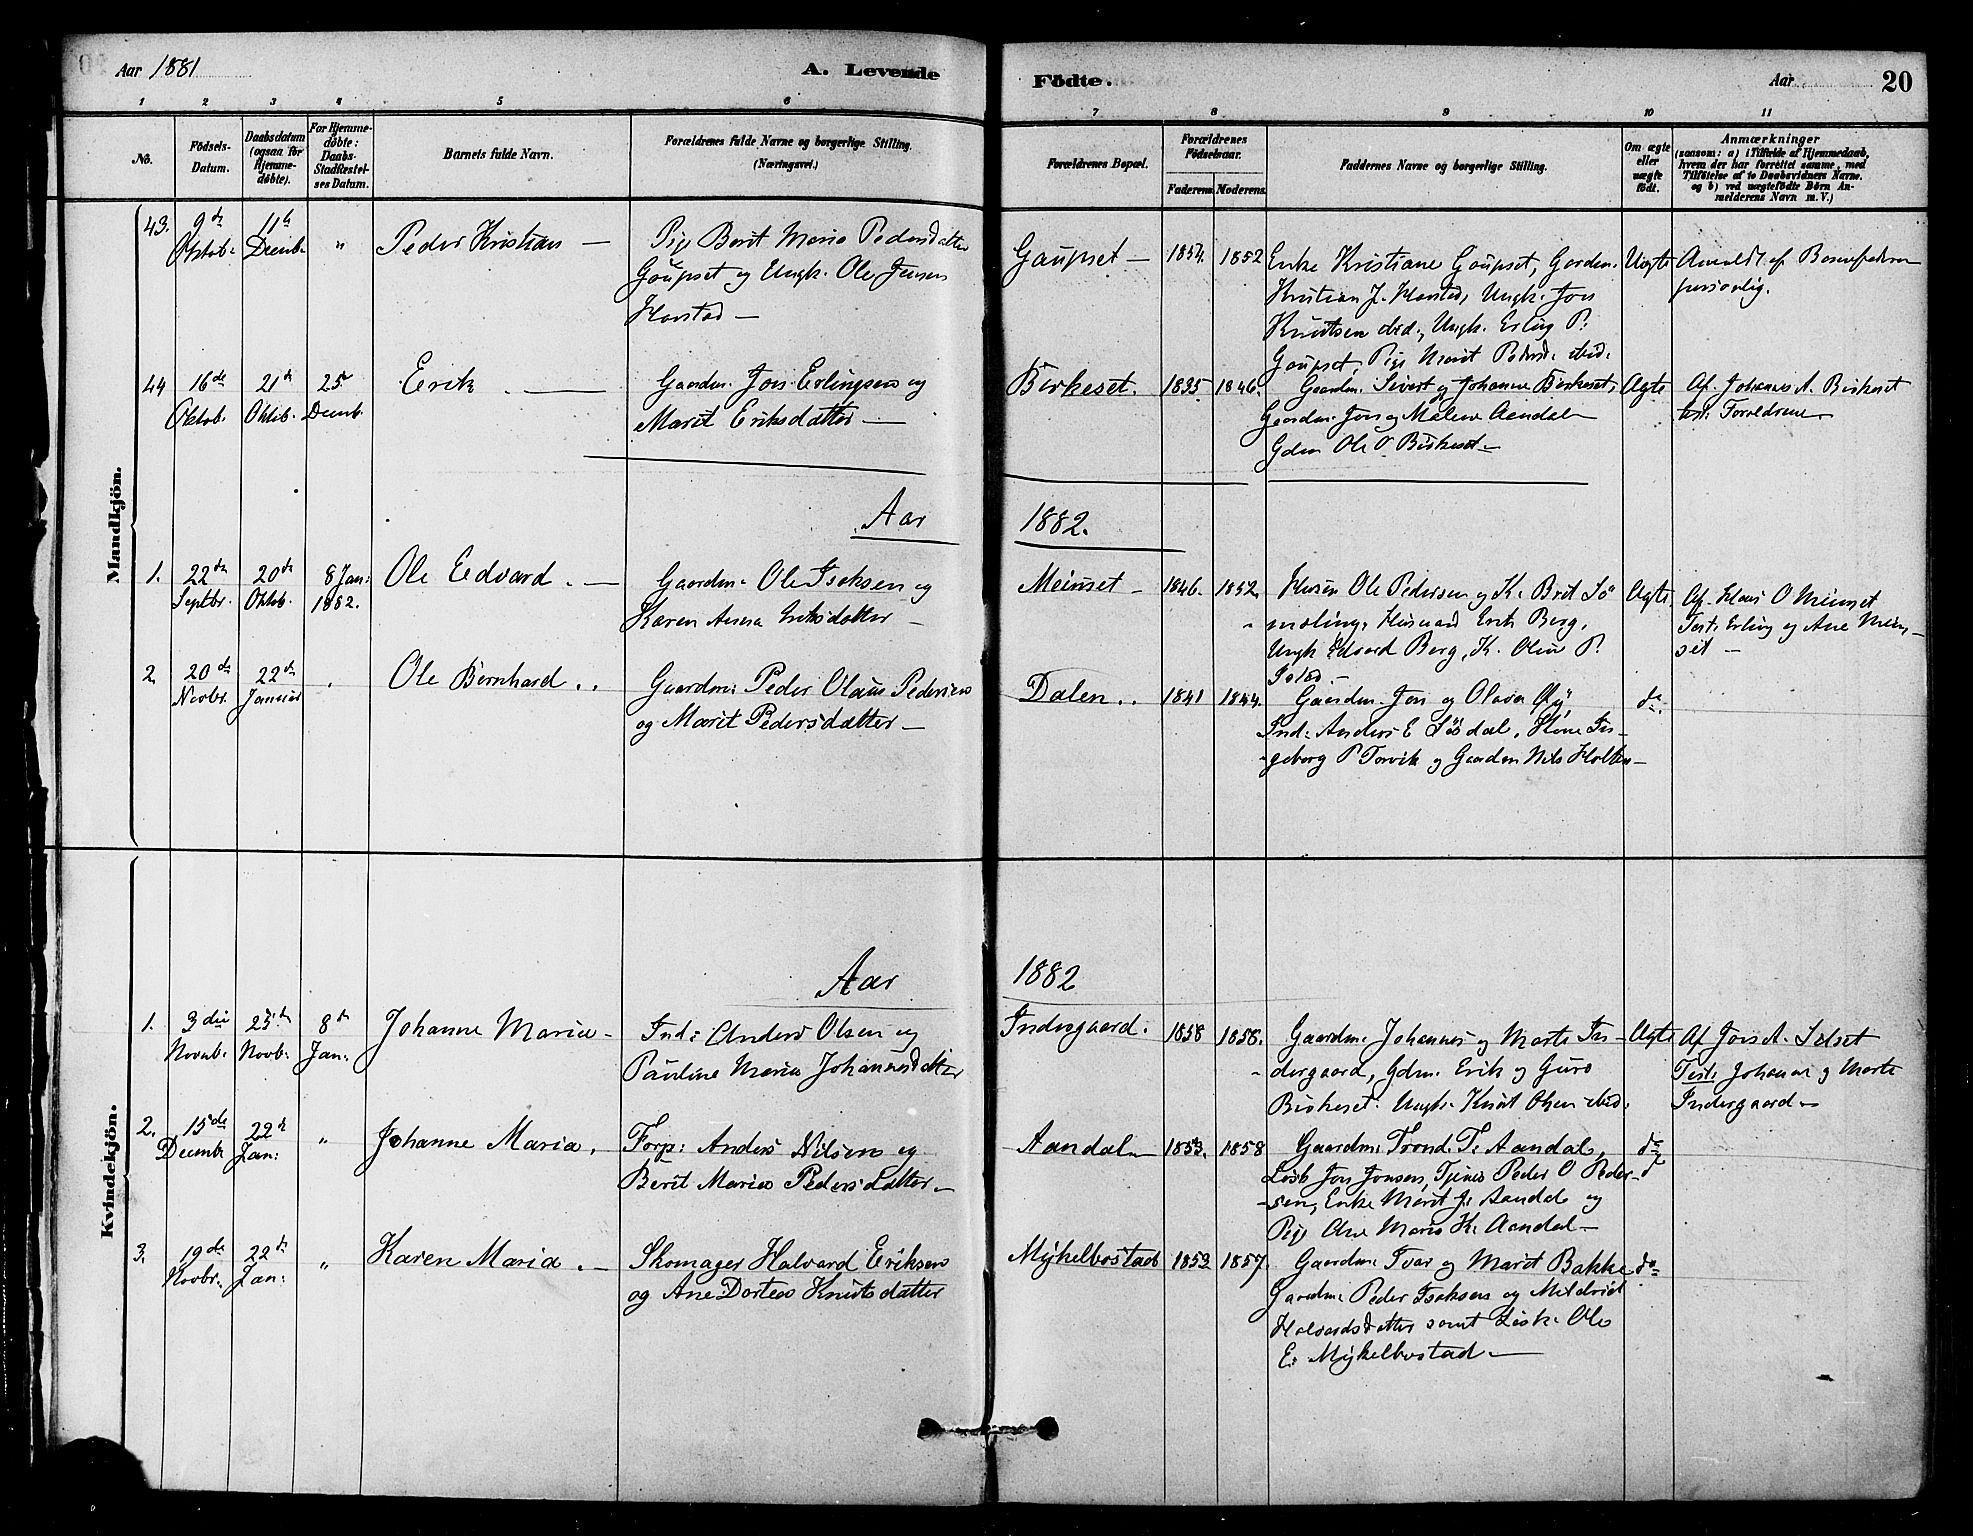 Aar 1881
A. Levende
Födte.
Aar
20
1 2 3 4 5 6 7 8 9 10 11
No.
Födsels-Datum.
Daabsdatum (ogsaa for Hjemme-döbte).
For Hjemme-döbte: Daabs-Stadfæstel-ses Datum.
Barnets fulde Navn.
Forældrenes fulde Navne og borgerlige Stilling. (Næringsvei.)
Forældrenes Bopæl.
Forældrenes Födselsaar.
Faderens. Moderens.
Faddernes Navne og borgerlige Stilling.
Om ægte eller uægte födt.
Anmærkninger
(saasom: a) i Tilfælde af Hjemmedaab,
hvem der har forrettet samme, med
Tilföielse af to Daabsvidners Navne.
og b) ved uægtefödte Börn An-
melderens Navn m. V.)
Mandkjön.
43. 9de Oktob. 11te Decmb. " Peder Kristian —
Pige Berit Maria Pedersdatter
Gaupset og Ungk. Ole Jensen
Harstad —
Gaupset — 1854. 1852
Enke Kristiane Gaupset, Gardm.
Kristian J. Harstad, Ungk. Jon
Knudtsen ibid., Ungk. Erling P.
Gaupset, Pige Marit Pedersd. ibid.
Uægte
Anmeldt af Barnefaderen
personlig.
44 16de Oktob. 21de Oktob. 25de Decmb. Erik —
Gaardm. Jon Erlingsen og
Marit Eriksdatter —
Birkeset. 1835 1846.
Gaardm. Sivert og Johanne Birkeset,
Gaardm. Jon og Malene Aandal
Gdm Ole O Birkeset —
Ægte
Af Johannes A. Birkeset
test. Forældrene
Aar 1882.
1. 22de Septbr. 20de Oktob. 8 Jan: 1882. Ole Edvard. —
Gaardm. Ole Isaksen og
Karen Anna Eriksdatter —
Meimset — 1846. 1852.
Husm Ole Pedersen og K. Brit Sö
-moling, Husmand Erik Berg,
Ungk Edvard Berg, K. Oline P.
Ægte.
Af Klaus O Meimset
Test. Erling og Ane Meim-
set —
2. 20de Novbr. 22de Januar . Ole Bernhard . .
Gaardm: Peder Olaus Pedersen
og Marit Pedersdatter —
Dalen . . 1841 1844.
Gaardm. Jon og Olava Öy,
Ind. Anders E Södal, Kone In-
-geborg P Torvik og Gaardm Nils Holten —
do.
Kvindekjön.
Aar 1882
1. 3die Novmb. 25de Novb. 8de Jan: Johanne Maria —
Ind: Anders Olsen og
Pauline Maria Johannesdatter
Indergaard. 1858 1858.
Gaardm. Johannes og Marte In-
-dergaard, Gdm. Erik og Guro
Birkeset. Ungk. Knut Olsen ibid.
Ægte
Af Jons A. Selset
Test: Johannes og Marte
Indergaard —
2. 15de Decmbr 22de Jan: " Johanne Maria.
Forp: Anders Nilsen og
Berit Maria Pedersdatter —
Aandal — 1853. 1858
Gaardm: Trond T. Aandal,
Lösk Jon Jonsen, Tjener Peder O Peder-
-sen, Enke Marit J. Aandal og
Pige Ane Maria K. Aandal —
do
3. 19de Novbr. 22de Jan: " Karen Maria . —
Skomager Halvard Eriksen
og Ane Dortea Knutsdatter
Mykelbostad 1853 1857.
Gaardm. Ivar og Marit Bakke
Gaardm. Peder Isaksen og Mildrid
Halvardsdatter samt Lösk. Ole
E. Mykelbostad —
do